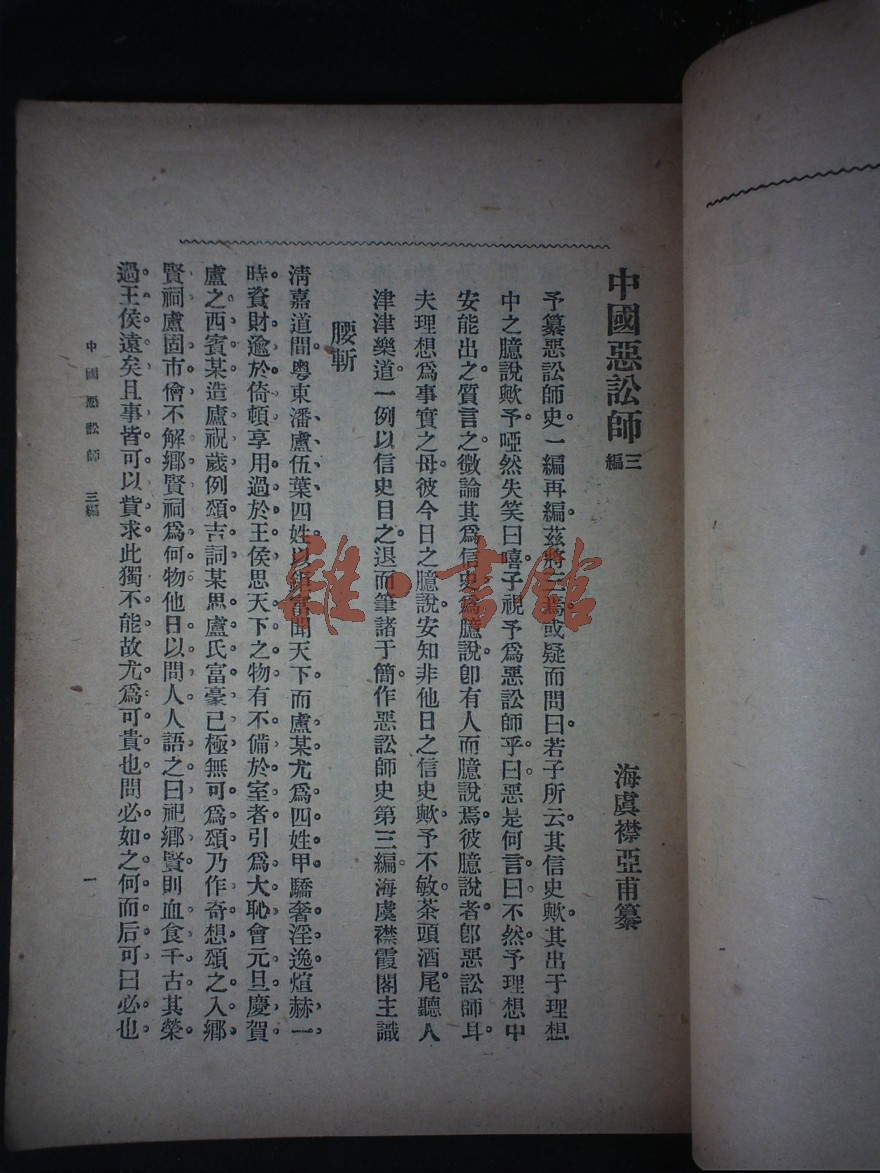 中國惡訟師三編
海虞襟亞甫纂
予纂惡訟師史。一編再編茲將三焉或疑而問曰若子所云其信史歟其出于理想
中之臆說歟予啞然失笑曰嘻子視予爲惡訟師乎曰惡是何言曰不然予理想中
安能出之。質言之。微論其爲信史爲臆說卽有人而臆說焉。彼臆說者卽惡訟師耳。
夫理想爲事實之母。彼今日之臆說安知非他日之信史歟。予不敏茶頭酒尾聽人
津津樂道一例以信史目之。退而筆諸于簡。作惡訟師史第三編。海虞襟霞閣主識
腰斬
淸嘉道間粤東潘盧伍葉四姓以 富聞天下而盧某尤爲四姓甲驕奢淫逸煊赫一
時資財逾於倚頓享用過於王侯思天下之物有不備於室者引爲大恥會元旦慶賀
盧之西賓某造廬祝嵗例頌吉詞某思盧氏富豪已極無可爲頌乃作奇想頌之入鄕
賢祠盧固市儈不解鄕賢祠爲何物他日以問人人語之曰祀鄕賢則血食千古其榮
過王侯遠矣且事皆可以貲求此獨不能故尤爲可貴也問必如之何而后可曰必也
中國惡訟師 三編
一
雜·書館